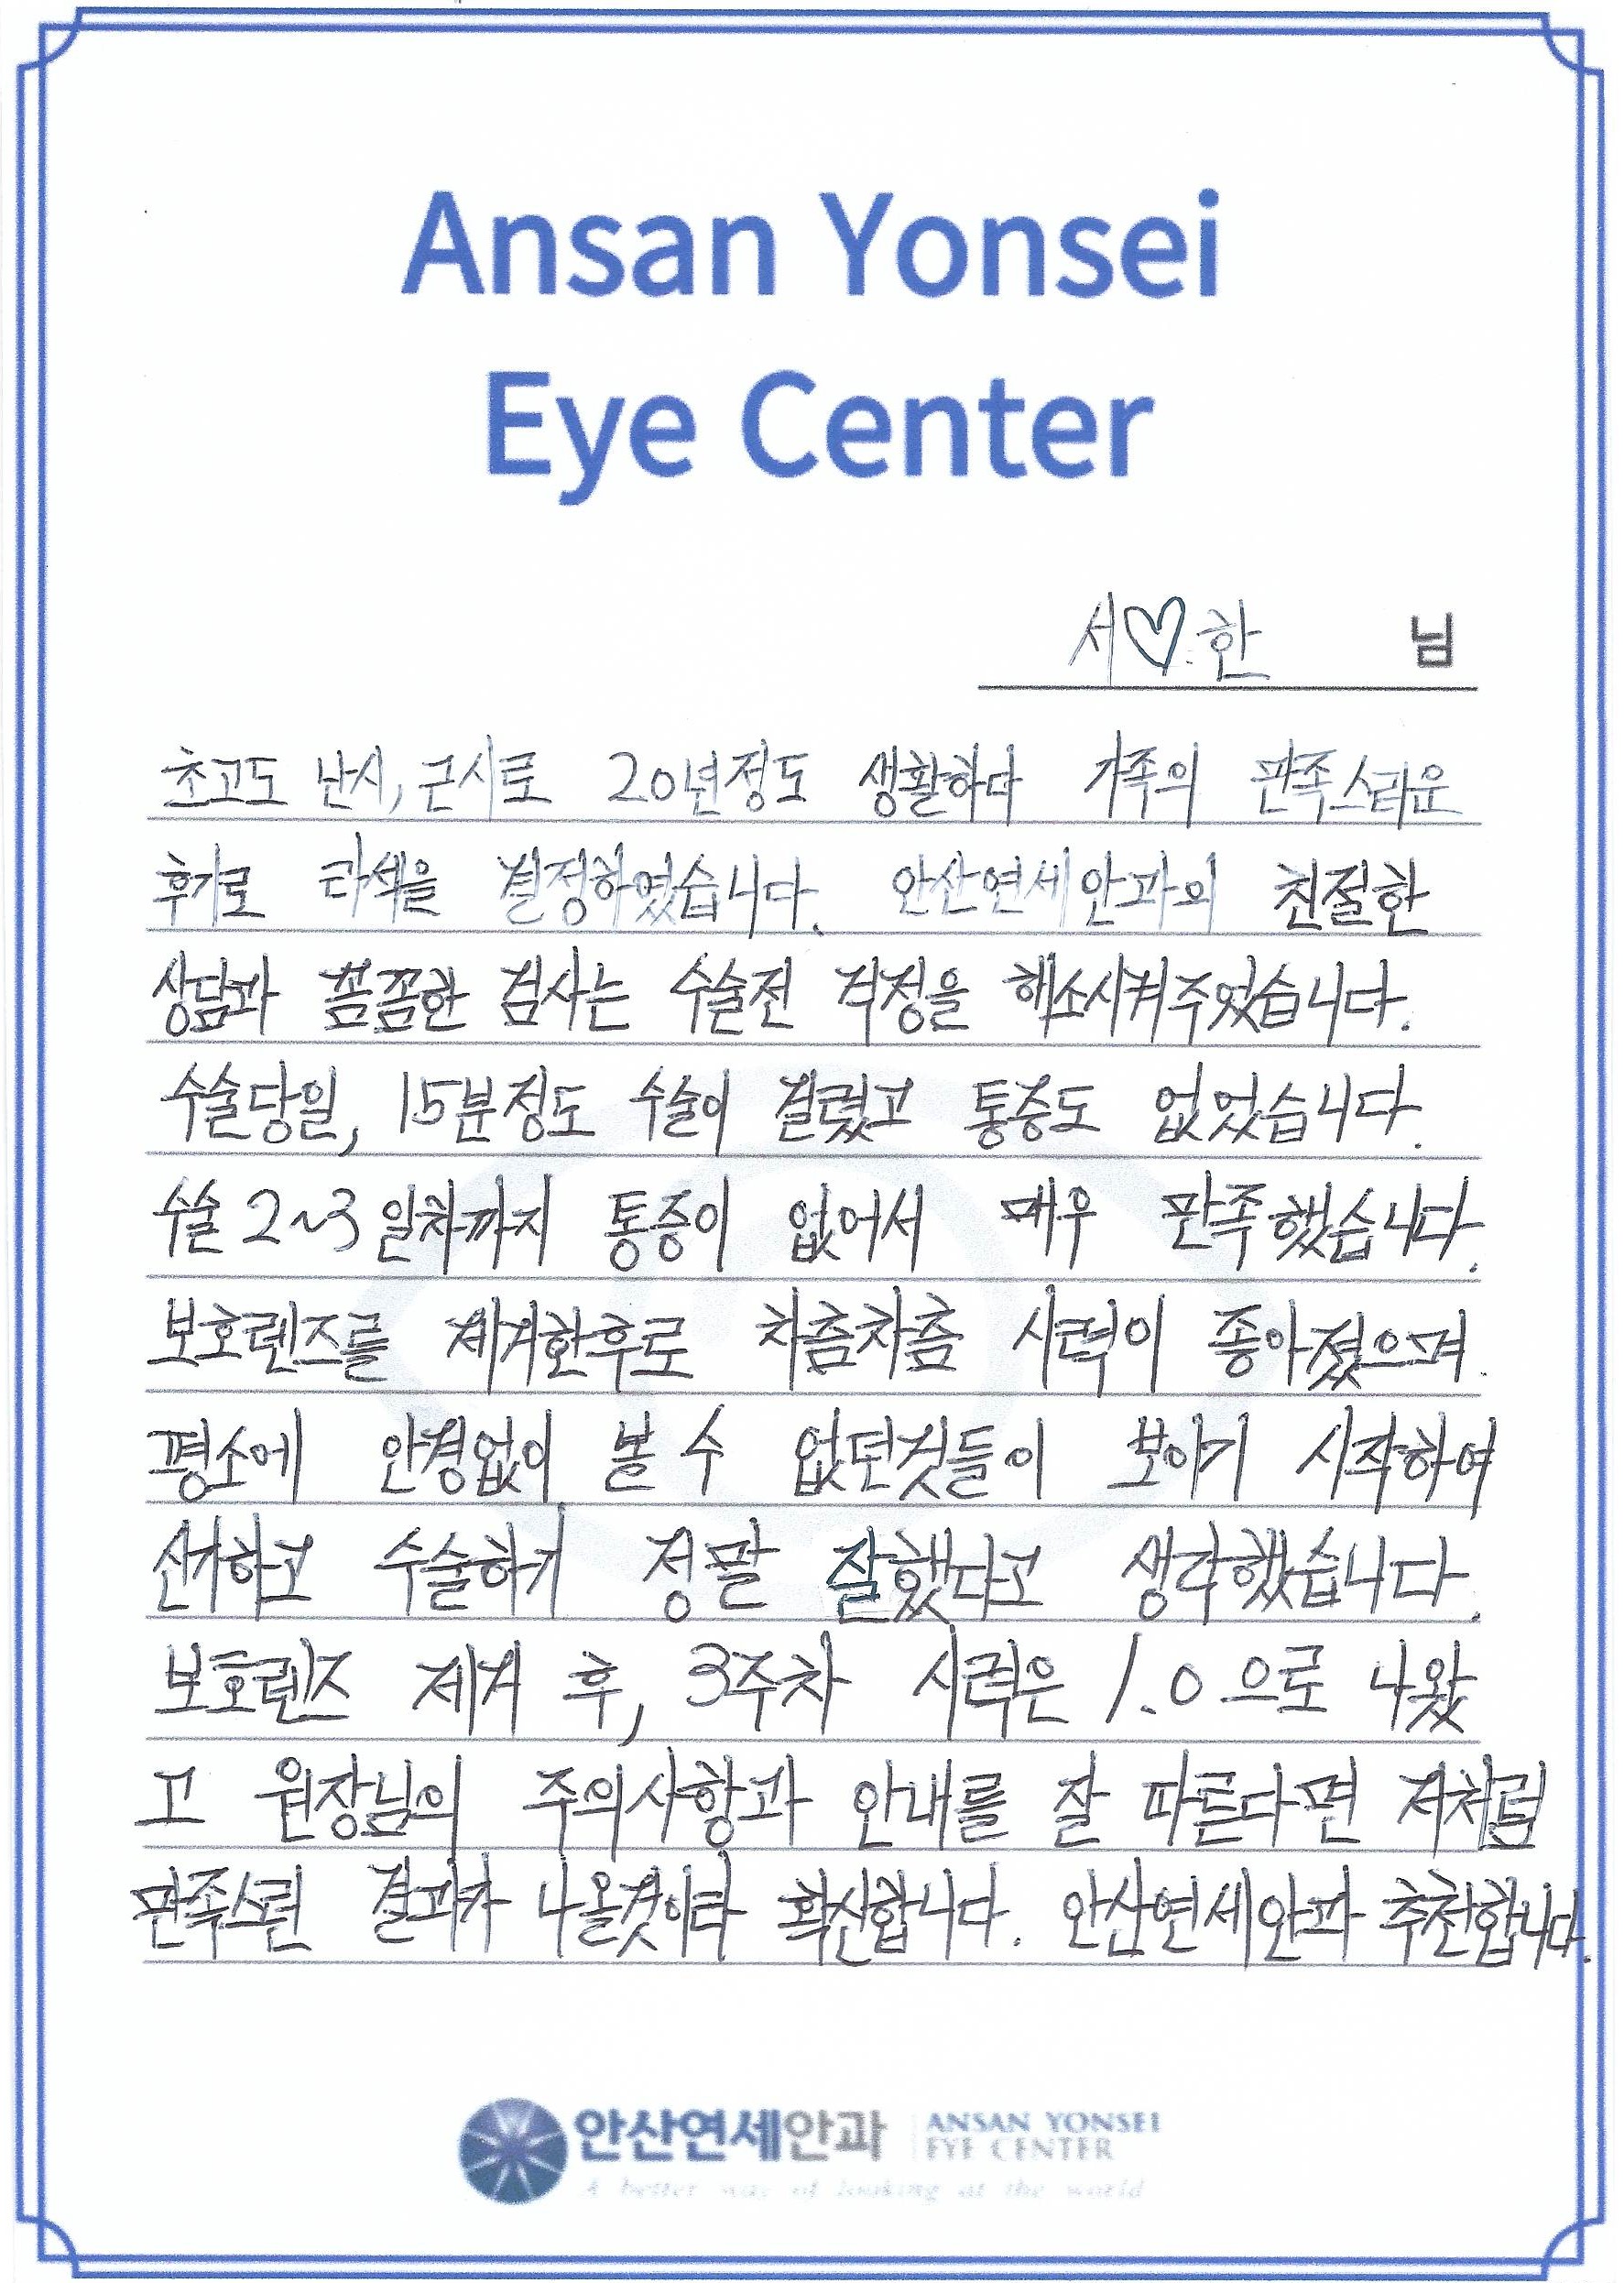 Ansan Yonsei
Eye Center
서♡한 님
초고도 난시, 근시로 20년정도 생활하다 가족의 만족스러운
후기로 라섹을 결정하였습니다. 안산연세안과의 친절한
상담과 꼼꼼한 검사는 수술전 걱정을 해소시켜주었습니다.
수술당일, 15분정도 수술이 걸렸고 통증도 없었습니다.
수술 2~3일차까지 통증이 없어서 매우 만족했습니다.
보호렌즈를 제거한후로 차츰차츰 시력이 좋아졌으며.
평소에 안경없이 볼 수 없던것들이 보이기 시작하여
신기하고 수술하기 정말 잘했다고 생각했습니다.
보호렌즈 제거 후, 3주차 시력은 1.0으로 나왔
고 원장님의 주의사항과 안내를 잘 따른다면 저처럼
만족스런 결과가 나올것이라 확신합니다. 안산연세안과 추천합니다.
안산연세안과 ANSAN YONSEI
EYE CENTER
A better way of looking at the world